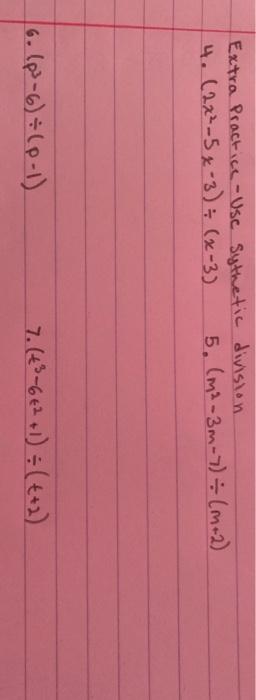 Extra Practice - Use Sythetic division
4. (2x²-5x-3) ÷ (x-3) 5. (m²-3m-7) ÷ (m+2)
6. (p³-6) ÷ (p-1) 7. (t³-6t²+1) ÷ (t+2)